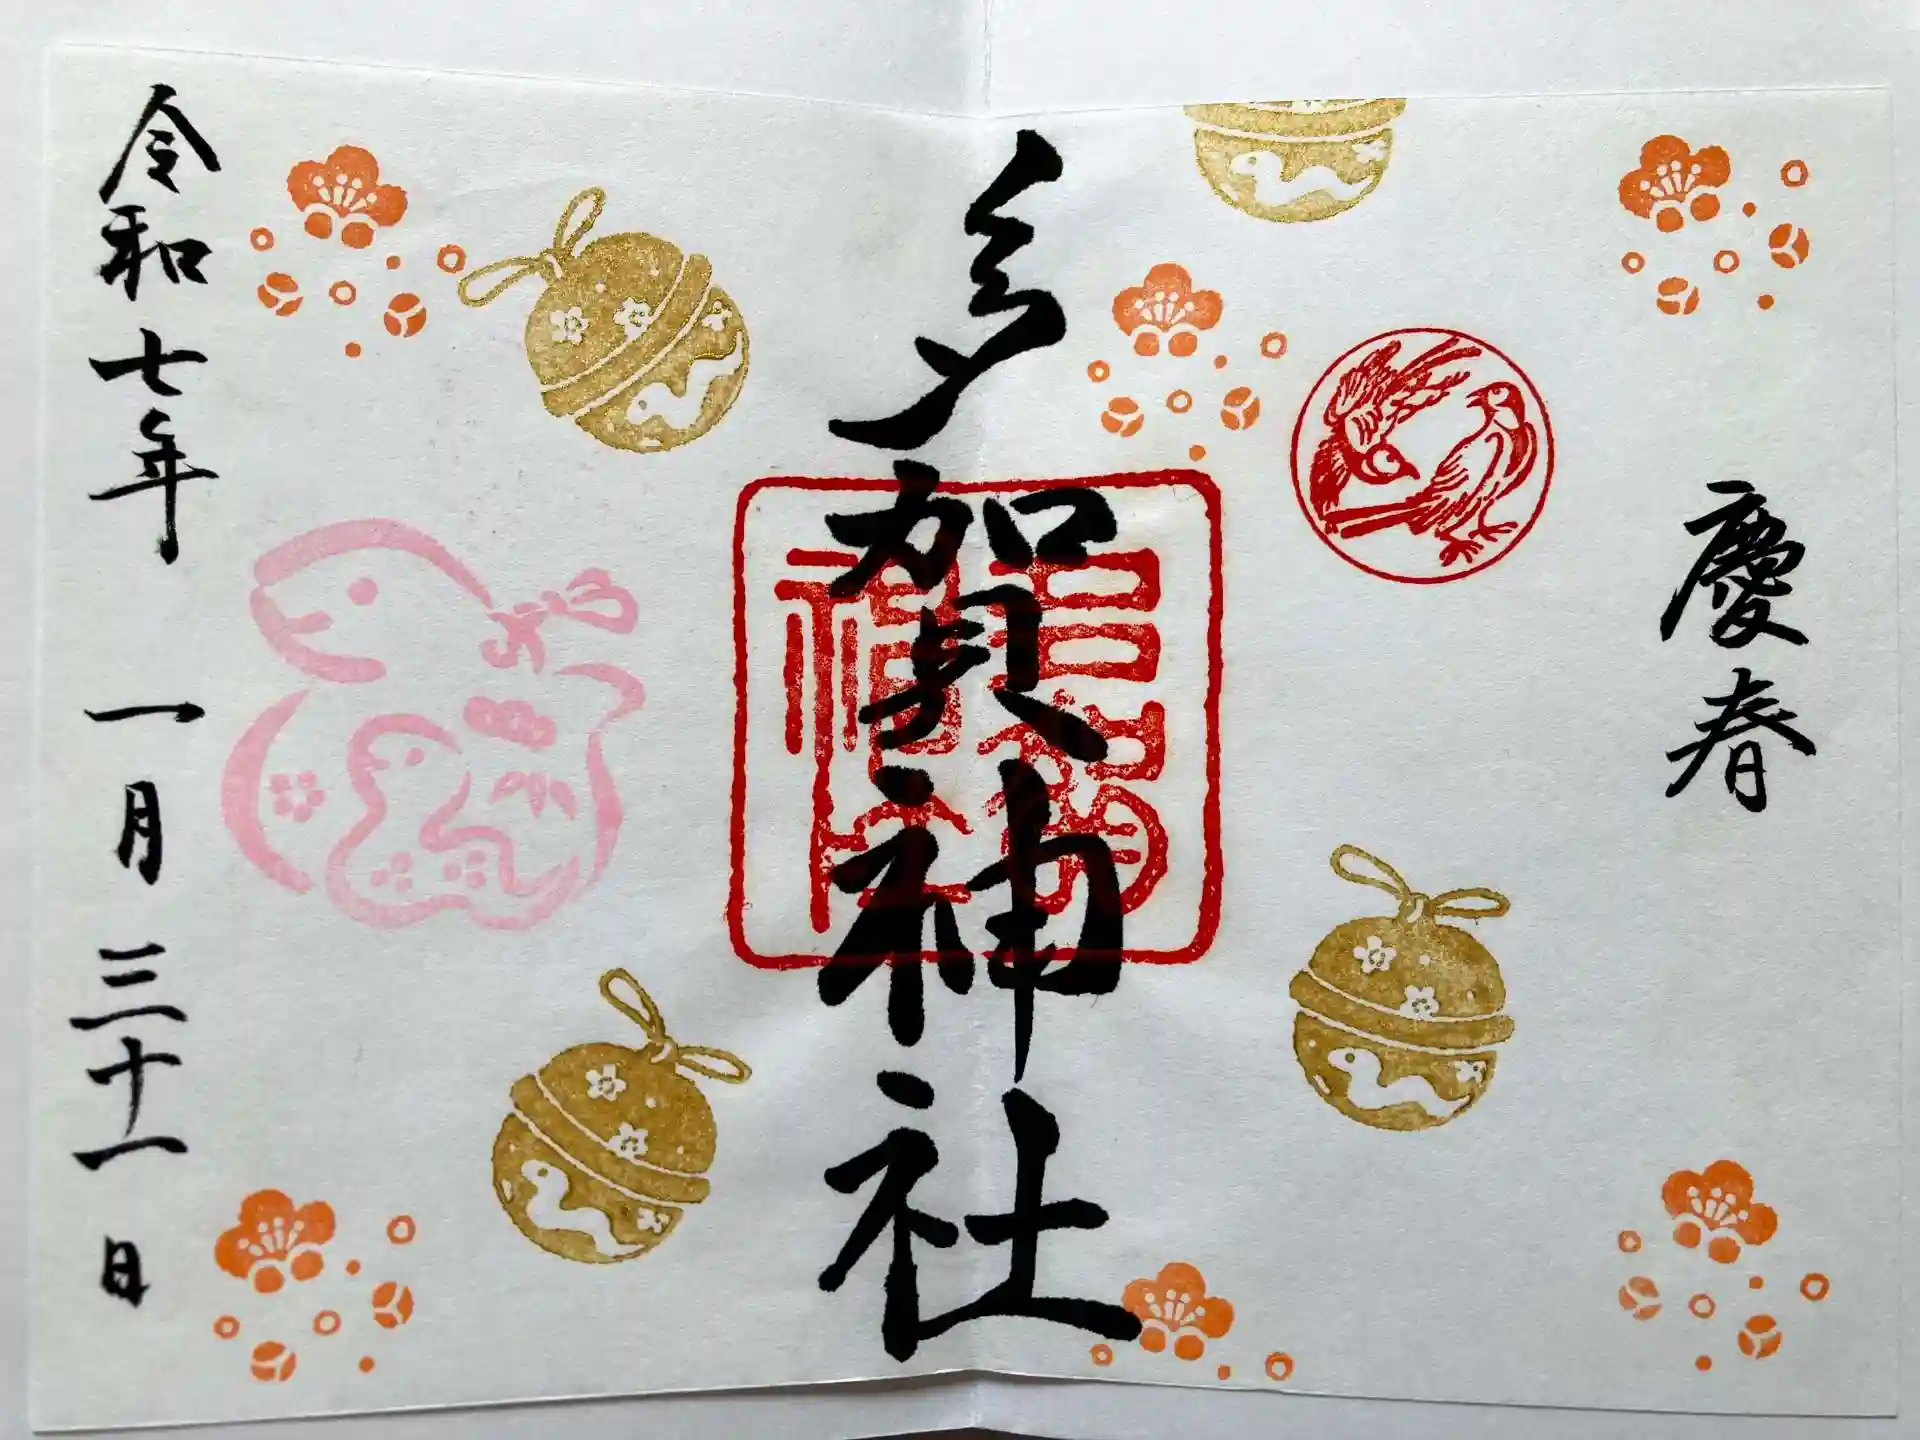 慶春
多賀神社
令和七年 一月三十一日